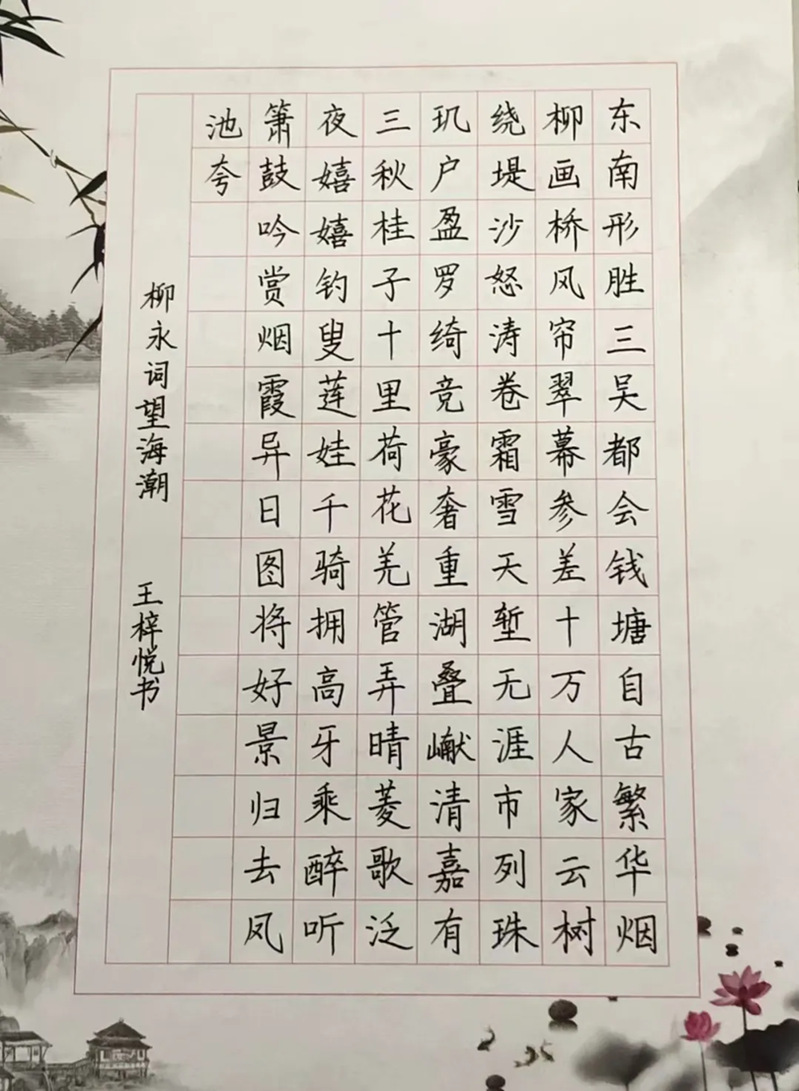 东南形胜三吴都会钱塘自古繁华烟
柳画桥风帘翠幕参差十万人家云树
绕堤沙怒涛卷霜雪天堑无涯市列珠
玑户盈罗绮竞豪奢重湖叠𪩘清嘉有
三秋桂子十里荷花羌管弄晴菱歌泛
夜嬉嬉钓叟莲娃千骑拥高牙乘醉听
箫鼓吟赏烟霞异日图将好景归去凤
池夸
柳永词望海潮 王梓悦书